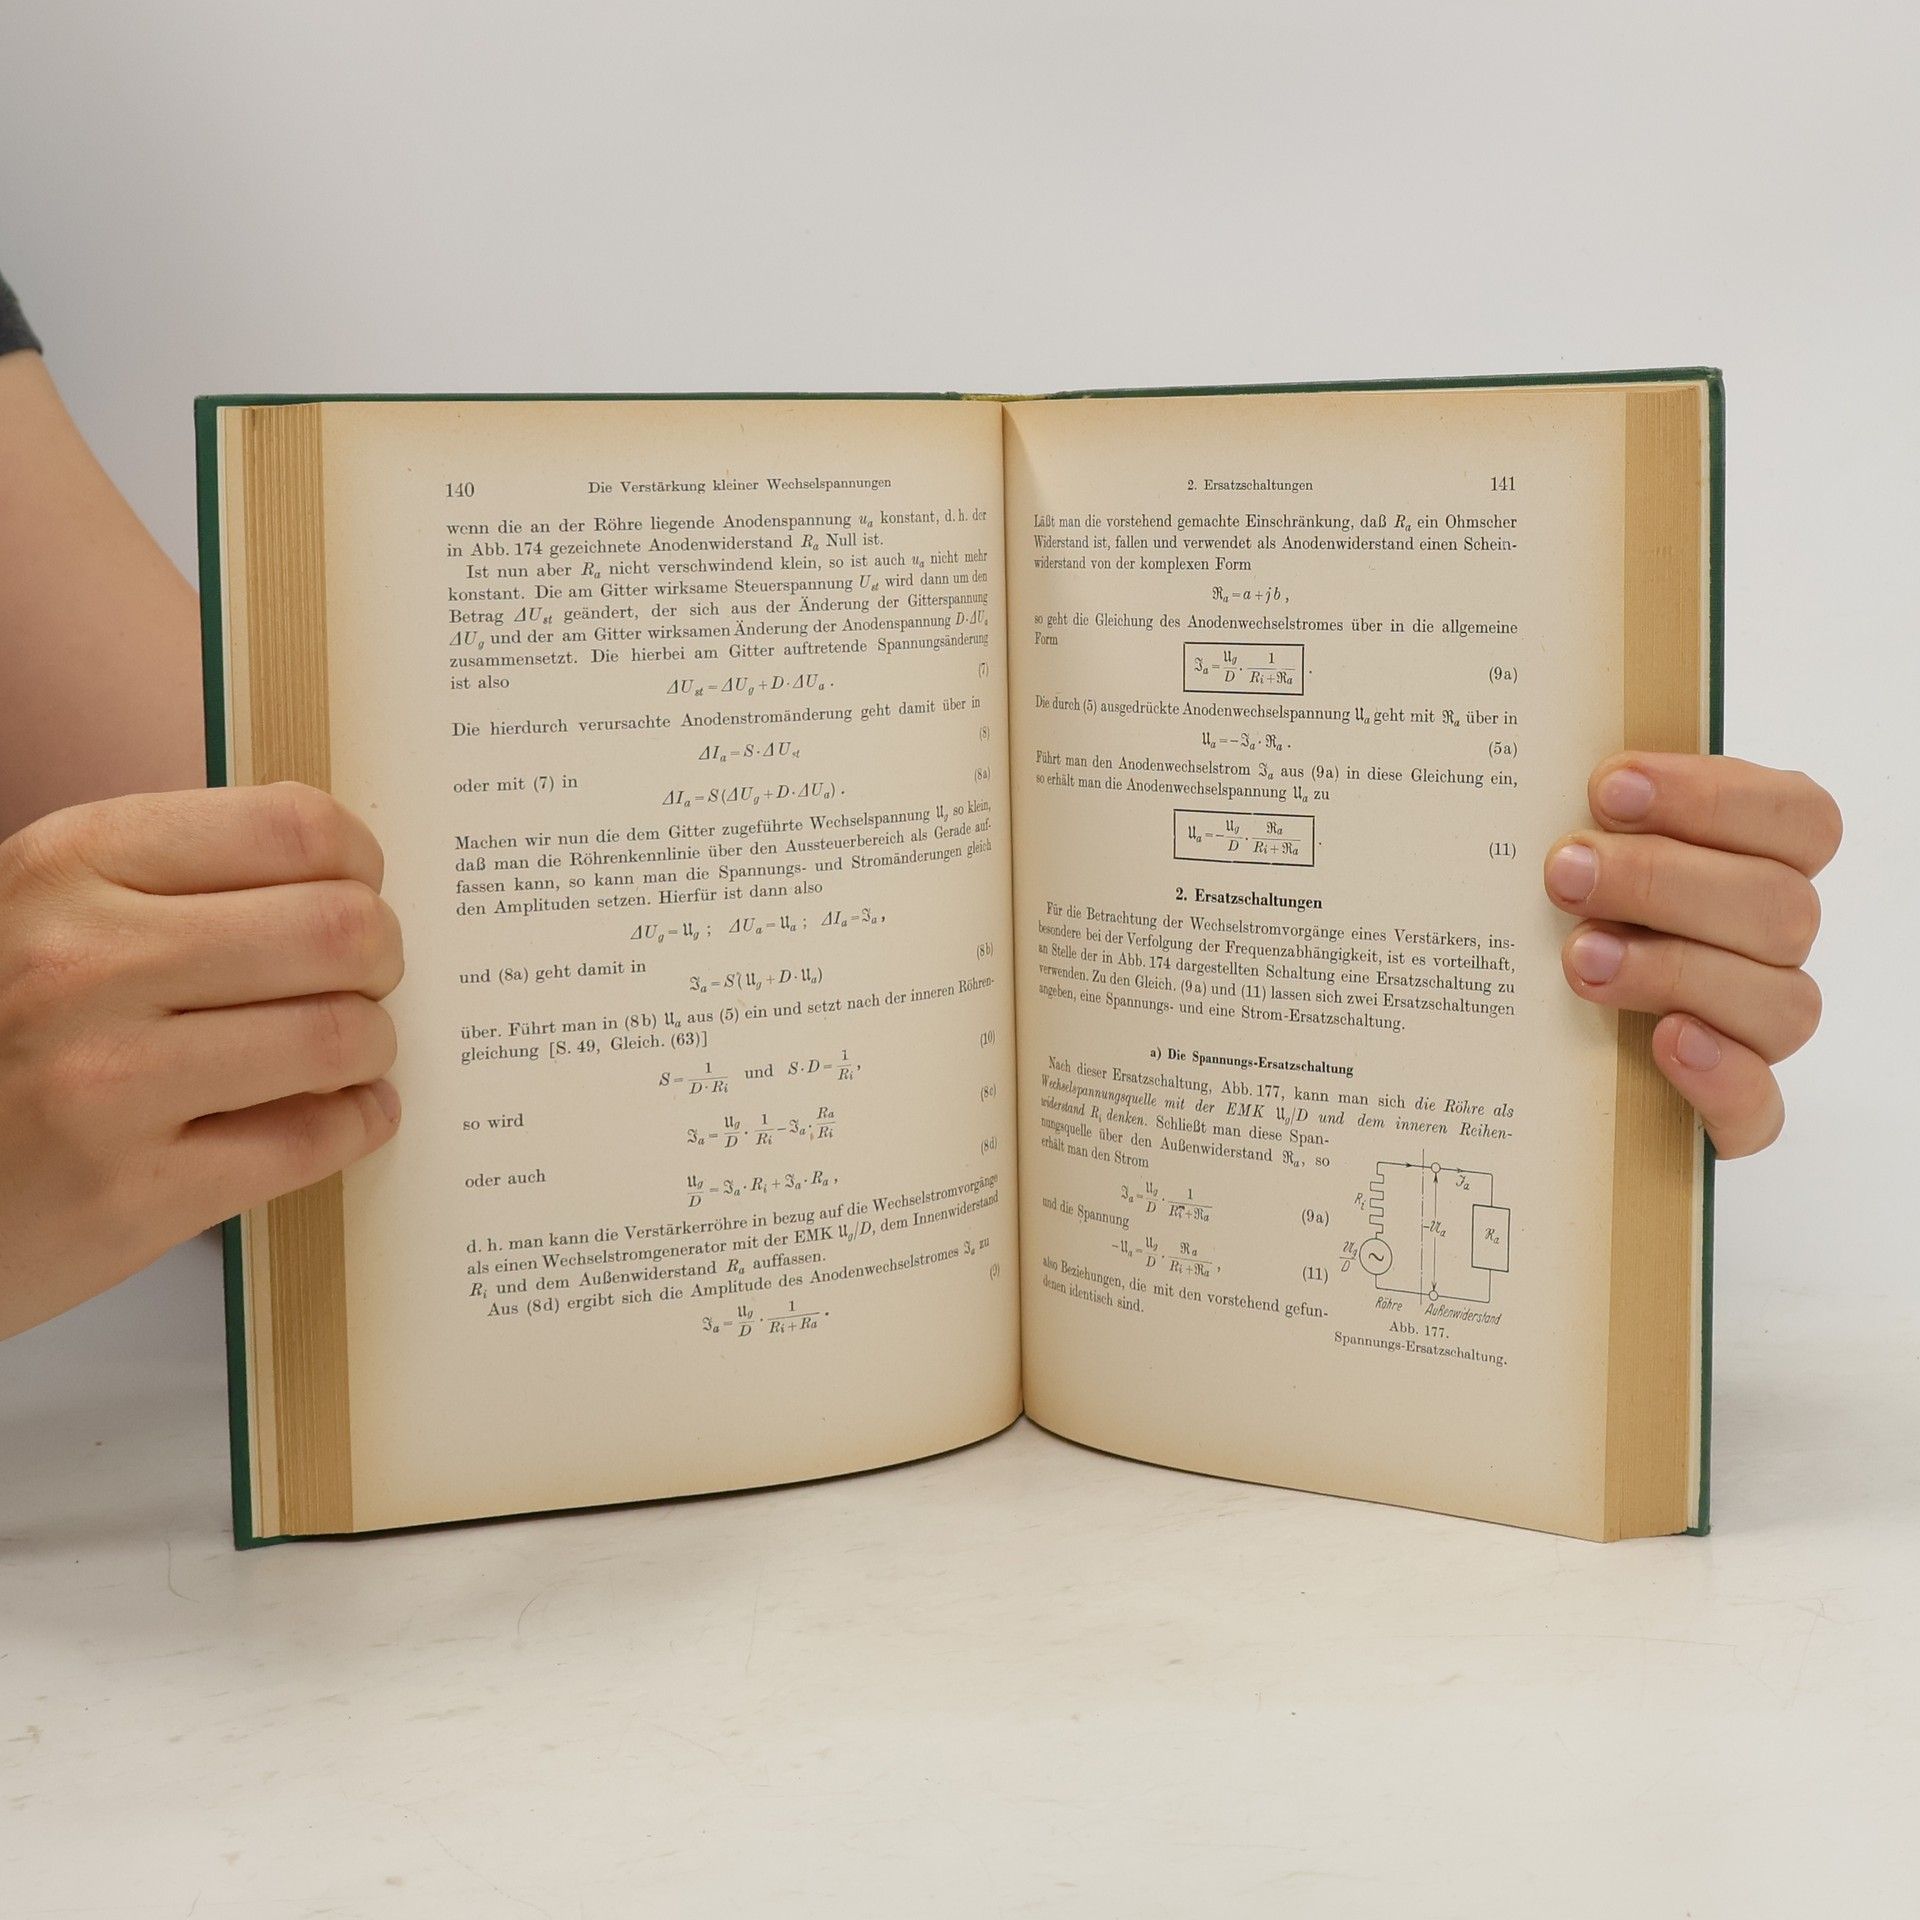 140 Die Verstärkung kleiner Wechselspannungen
wenn die an der Röhre liegende Anodenspannung u_a konstant, d. h. der
in Abb. 174 gezeichnete Anodenwiderstand R_a Null ist.
Ist nun aber R_a nicht verschwindend klein, so ist auch u_a nicht mehr
konstant. Die am Gitter wirksame Steuerspannung U_st wird dann um den
Betrag ΔU_st geändert, der sich aus der Änderung der Gitterspannung
ΔU_g und der am Gitter wirksamen Änderung der Anodenspannung D·ΔU_a
zusammensetzt. Die hierbei am Gitter auftretende Spannungsänderung
ist also
ΔU_st = ΔU_g + D·ΔU_a . (7)
Die hierdurch verursachte Anodenstromänderung geht damit über in
ΔI_a = S·ΔU_st (8)
oder mit (7) in
ΔI_a = S(ΔU_g + D·ΔU_a) . (8a)
Machen wir nun die dem Gitter zugeführte Wechselspannung 𝔘_g so klein,
daß man die Röhrenkennlinie über den Aussteuerbereich als Gerade auf-
fassen kann, so kann man die Spannungs- und Stromänderungen gleich
den Amplituden setzen. Hierfür ist dann also
ΔU_g = 𝔘_g ; ΔU_a = 𝔘_a ; ΔI_a = ℑ_a ,
und (8a) geht damit in
ℑ_a = S(𝔘_g + D·𝔘_a) (8b)
über. Führt man in (8b) 𝔘_a aus (5) ein und setzt nach der inneren Röhren-
gleichung [S. 49, Gleich. (63)]
S = 1/(D·R_i) und S·D = 1/R_i , (10)
so wird
ℑ_a = 𝔘_g/D · 1/R_i − ℑ_a · R_a/R_i (8c)
oder auch
𝔘_g/D = ℑ_a·R_i + ℑ_a·R_a , (8d)
d. h. man kann die Verstärkerröhre in bezug auf die Wechselstromvorgänge
als einen Wechselstromgenerator mit der EMK 𝔘_g/D, dem Innenwiderstand
R_i und dem Außenwiderstand R_a auffassen.
Aus (8d) ergibt sich die Amplitude des Anodenwechselstromes ℑ_a zu
ℑ_a = 𝔘_g/D · 1/(R_i + R_a) . (9)
2. Ersatzschaltungen 141
Läßt man die vorstehend gemachte Einschränkung, daß R_a ein Ohmscher
Widerstand ist, fallen und verwendet als Anodenwiderstand einen Schein-
widerstand von der komplexen Form
ℜ_a = a + j b ,
so geht die Gleichung des Anodenwechselstromes über in die allgemeine
Form
ℑ_a = 𝔘_g/D · 1/(R_i + ℜ_a) . (9a)
Die durch (5) ausgedrückte Anodenwechselspannung 𝔘_a geht mit ℜ_a über in
𝔘_a = − ℑ_a · ℜ_a . (5a)
Führt man den Anodenwechselstrom ℑ_a aus (9a) in diese Gleichung ein,
so erhält man die Anodenwechselspannung 𝔘_a zu
𝔘_a = − 𝔘_g/D · ℜ_a/(R_i + ℜ_a) . (11)
2. Ersatzschaltungen
Für die Betrachtung der Wechselstromvorgänge eines Verstärkers, ins-
besondere bei der Verfolgung der Frequenzabhängigkeit, ist es vorteilhaft,
an Stelle der in Abb. 174 dargestellten Schaltung eine Ersatzschaltung zu
verwenden. Zu den Gleich. (9a) und (11) lassen sich zwei Ersatzschaltungen
angeben, eine Spannungs- und eine Strom-Ersatzschaltung.
a) Die Spannungs-Ersatzschaltung
Nach dieser Ersatzschaltung, Abb. 177, kann man sich die Röhre als
Wechselspannungsquelle mit der EMK 𝔘_g/D und dem inneren Reihen-
widerstand R_i denken. Schließt man diese Span-
nungsquelle über den Außenwiderstand ℜ_a, so
erhält man den Strom
ℑ_a = 𝔘_g/D · 1/(R_i + ℜ_a) (9a)
und die Spannung
−𝔘_a = 𝔘_g/D · ℜ_a/(R_i + ℜ_a) , (11)
also Beziehungen, die mit den vorstehend gefun-
denen identisch sind.
ℑ_a
R_i
−𝔘_a
ℜ_a
𝔘_g/D
~
Röhre Außenwiderstand
Abb. 177.
Spannungs-Ersatzschaltung.